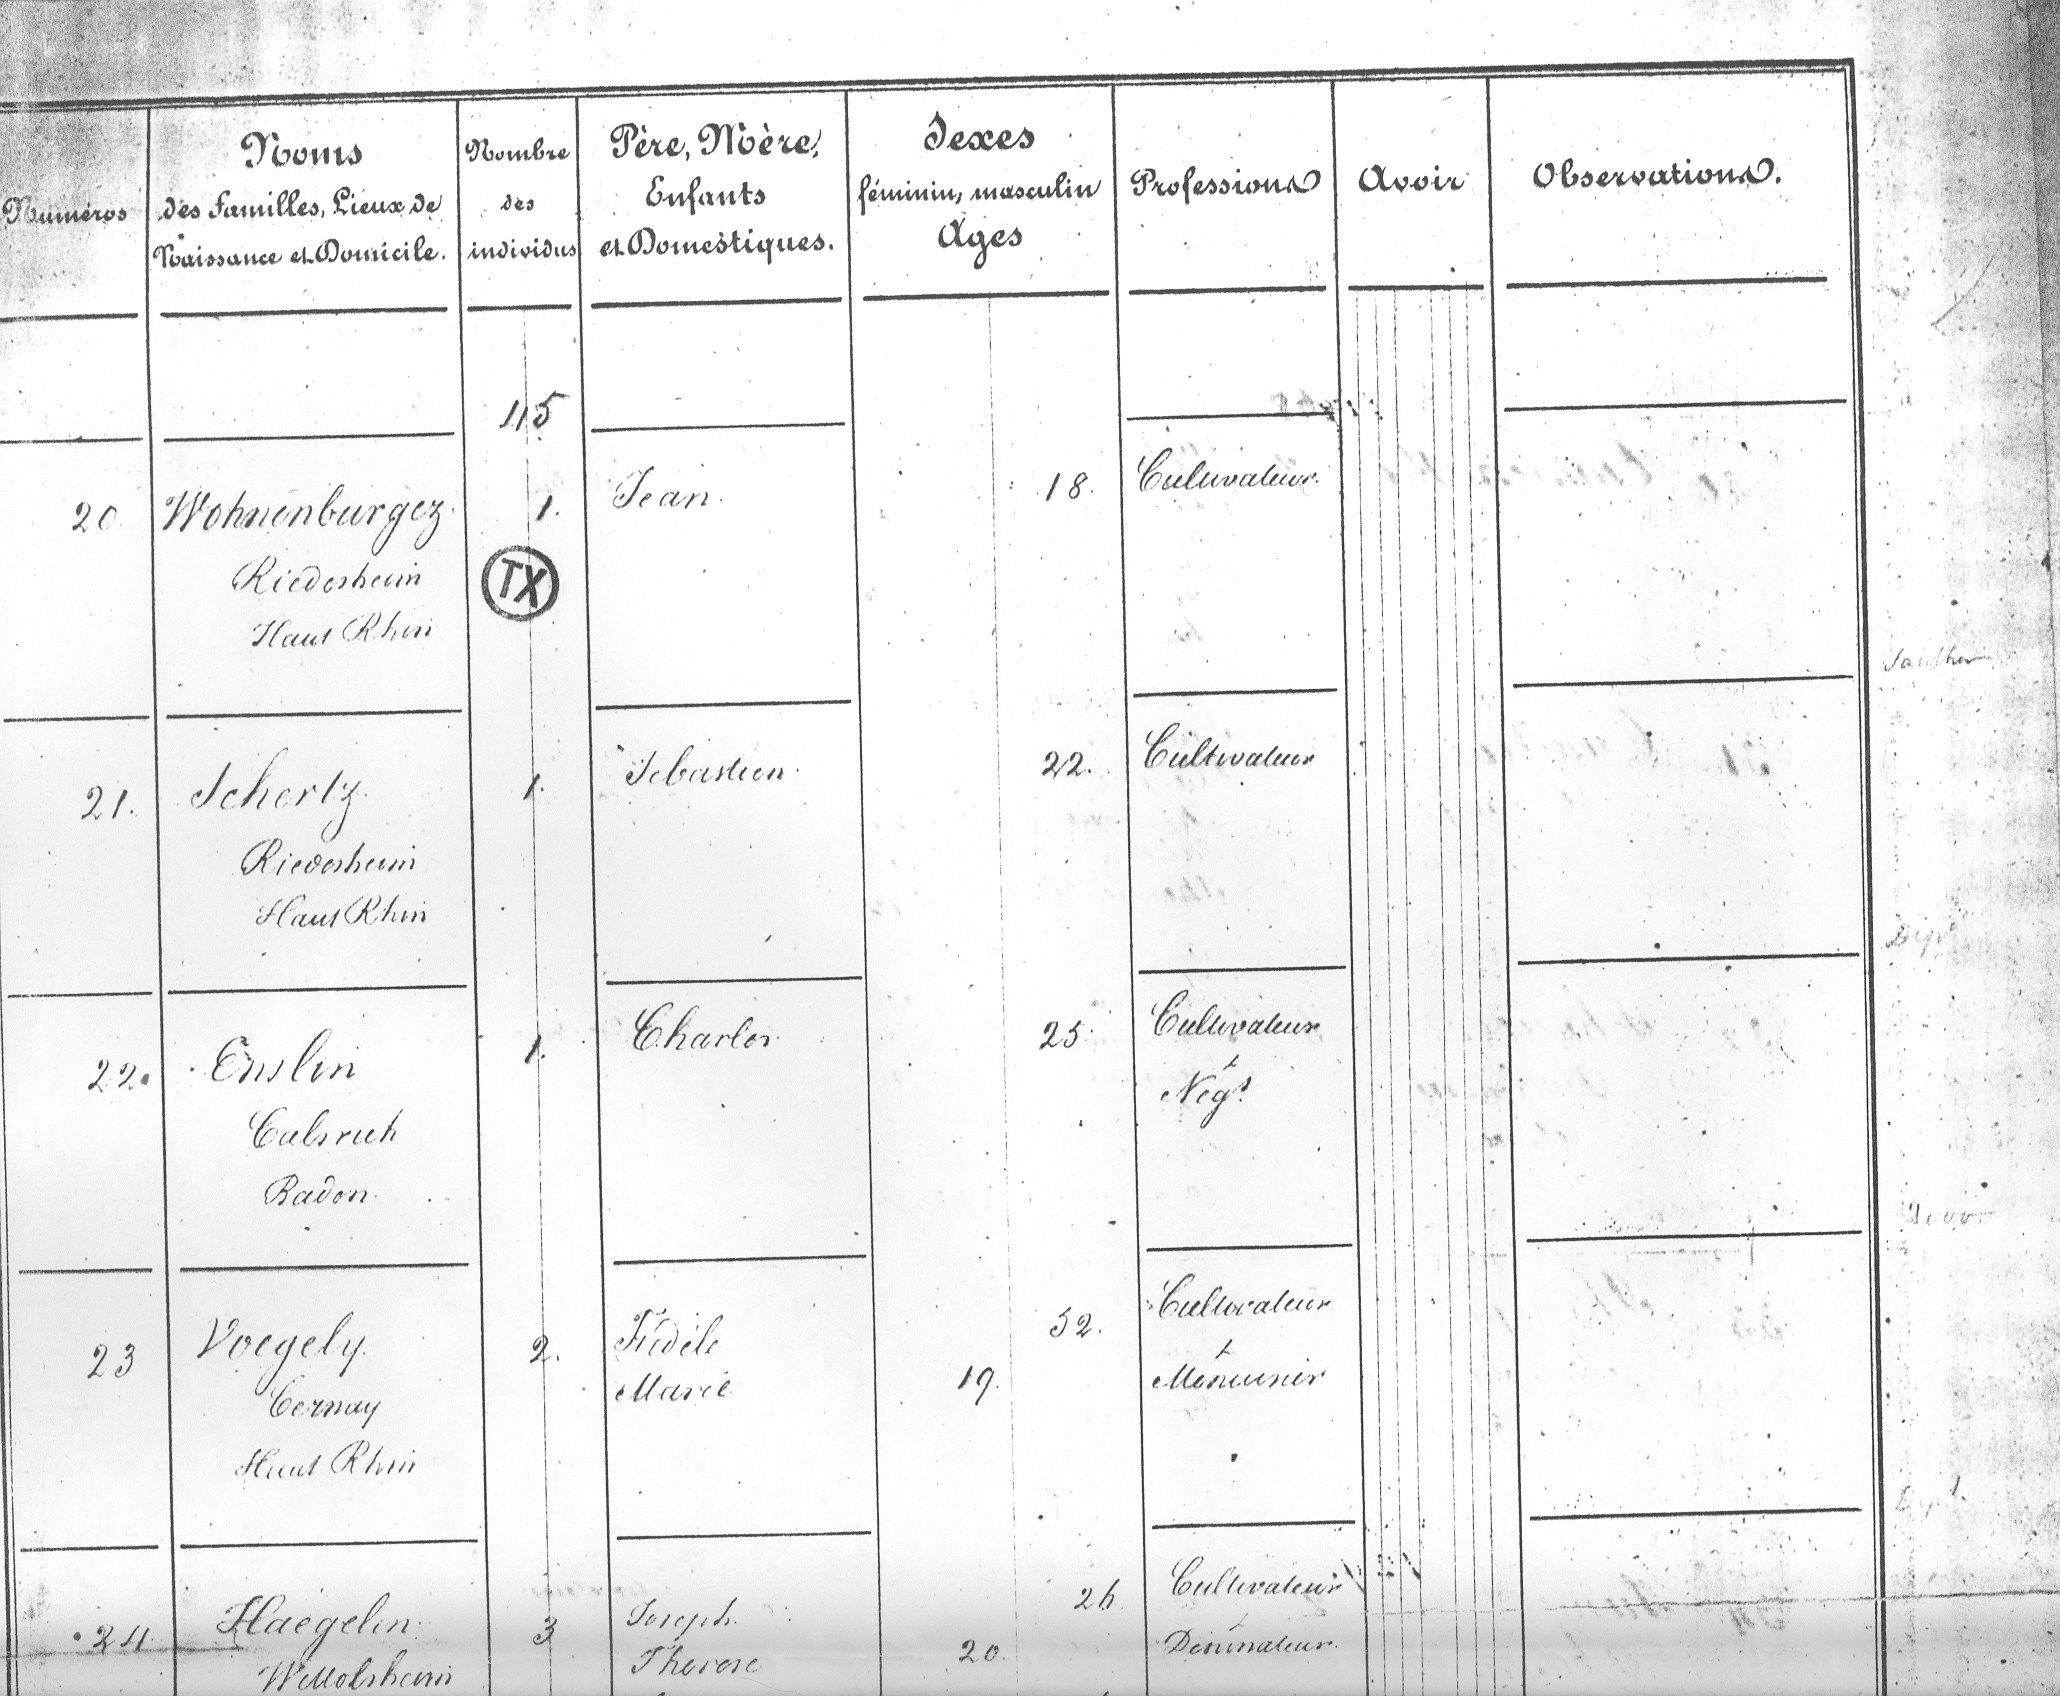 Numéros
Noms
des Familles, Lieux de
Naissance et Domicile.
Nombre
des
individus
Père, Mère,
Enfants
et Domestiques.
Sexes
féminin, masculin
Ages
Professions
Avoir
Observations.
115
20 Wohnenburger 1. Jean 18. Cultivateur.
Riedesheim
Haut Rhin
TX
21. Schertz 1. Sebastien 22. Cultivateur
Riedesheim
Haut Rhin
22. Enslin 1. Charles 25 Cultivateur
Calsruh
& Négt
Baden
23 Voegely 2. Fidèle 32. Cultivateur
Cernay Marie 19. & Menuisier
Haut Rhin
24 Haegelin 3 Joseph 26 Cultivateur
Wettolsheim Therese 20 Dessinateur